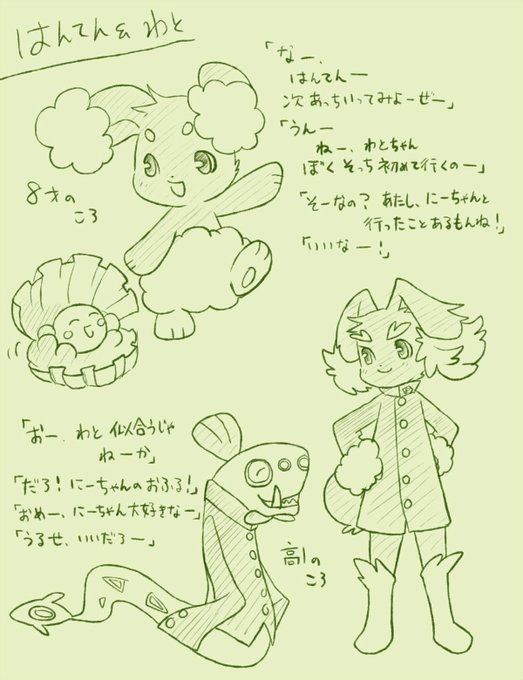 はんてん&わと
「なー、
はんてんー
次あっちいってみよーぜー」
「うんー
ねー、わとちゃん
ぼくそっち初めて行くのー」
「そーなの？あたし、にーちゃんと
行ったことあるもんね！」
「いいなー！」
8才の
ころ
「おー、わと似合うじゃ
ねーか」
「だろ！にーちゃんのおふる！」
「おめー、にーちゃん大好きなー」
「うるせ、いいだろー」
高1の
ころ